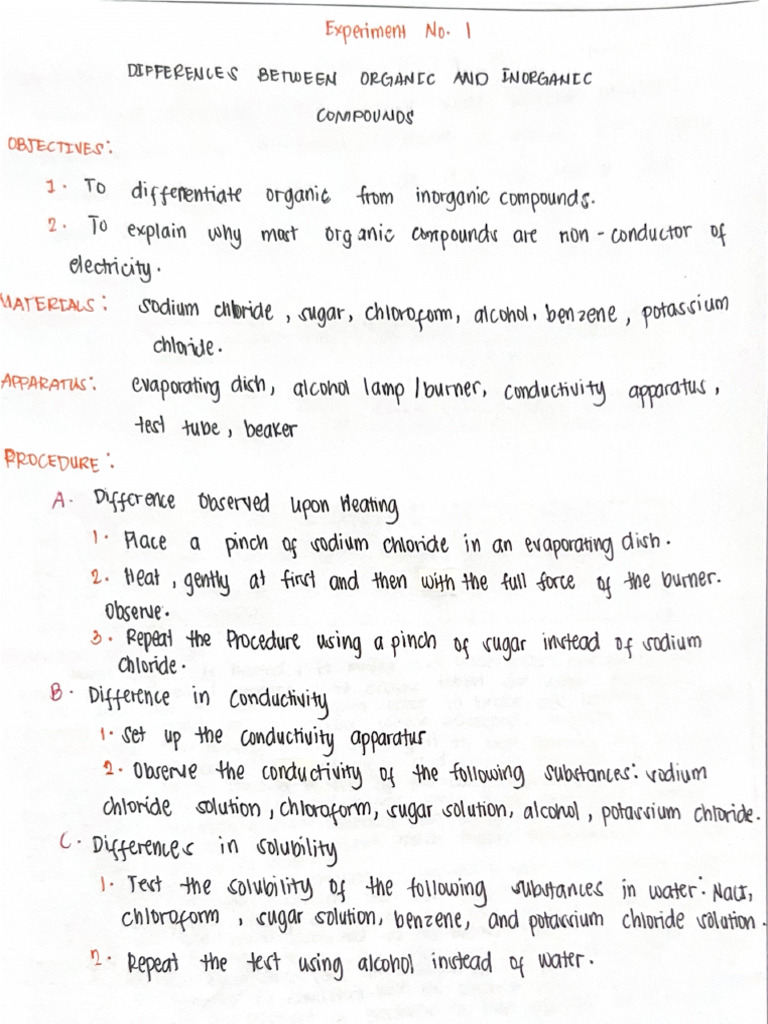 Experiment No. 1
DIFFERENCES BETWEEN ORGANIC AND INORGANIC
COMPOUNDS
OBJECTIVES:
1. To differentiate organic from inorganic compounds.
2. To explain why most organic compounds are non-conductor of
electricity.
MATERIALS: sodium chloride, sugar, chloroform, alcohol, benzene, potassium
chloride.
APPARATUS: evaporating dish, alcohol lamp/burner, conductivity apparatus,
test tube, beaker
PROCEDURE:
A. Difference Observed Upon Heating
1. Place a pinch of sodium chloride in an evaporating dish.
2. Heat, gently at first and then with the full force of the burner.
Observe.
3. Repeat the Procedure using a pinch of sugar instead of sodium
chloride.
B. Difference in Conductivity
1. Set up the conductivity apparatus
2. Observe the conductivity of the following substances: sodium
chloride solution, chloroform, sugar solution, alcohol, potassium chloride.
C. Differences in solubility
1. Test the solubility of the following substances in water: NaCl,
chloroform, sugar solution, benzene, and potassium chloride solution.
2. Repeat the test using alcohol instead of water.